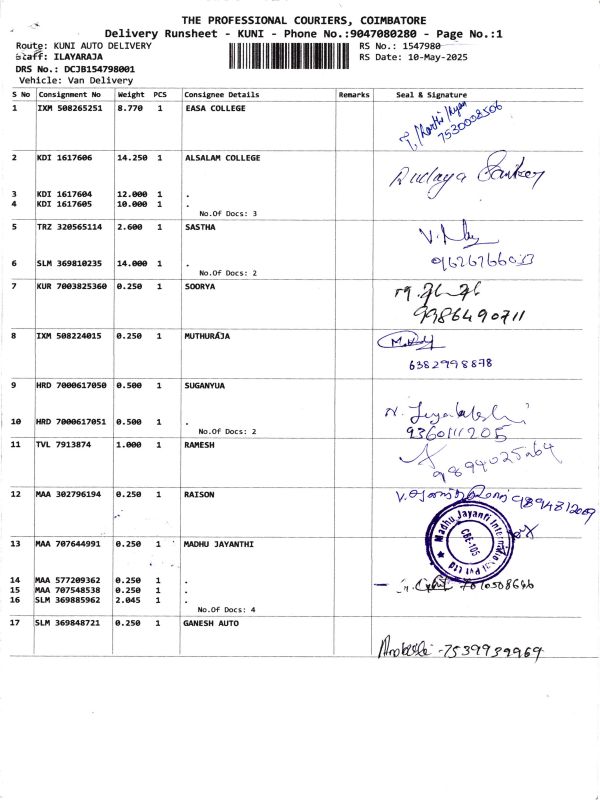 THE PROFESSIONAL COURIERS, COIMBATORE
Delivery Runsheet - KUNI - Phone No.:9047080280 - Page No.:1
Route: KUNI AUTO DELIVERY RS No.: 1547980
Staff: ILAYARAJA RS Date: 10-May-2025
DRS No.: DCJB154798001
Vehicle: Van Delivery
S No Consignment No Weight PCS Consignee Details Remarks Seal & Signature
1 IXM 508265251 8.770 1 EASA COLLEGE
7530008506
2 KDI 1617606 14.250 1 ALSALAM COLLEGE
3 KDI 1617604 12.000 1 .
4 KDI 1617605 10.000 1 .
No.Of Docs: 3
5 TRZ 320565114 2.600 1 SASTHA
6 SLM 369810235 14.000 1 .
No.Of Docs: 2
7 KUR 7003825360 0.250 1 SOORYA
9986490711
8 IXM 508224015 0.250 1 MUTHURAJA
6382998878
9 HRD 7000617050 0.500 1 SUGANYUA
10 HRD 7000617051 0.500 1 .
No.Of Docs: 2
9360111205
11 TVL 7913874 1.000 1 RAMESH
9894025264
12 MAA 302796194 0.250 1 RAISON
9894812009
Madhu Jayanti International Pvt Ltd
CBE-105
13 MAA 707644991 0.250 1 MADHU JAYANTHI
14 MAA 577209362 0.250 1 .
15 MAA 707548538 0.250 1 .
16 SLM 369885962 2.045 1 .
No.Of Docs: 4
17 SLM 369848721 0.250 1 GANESH AUTO
7539939969